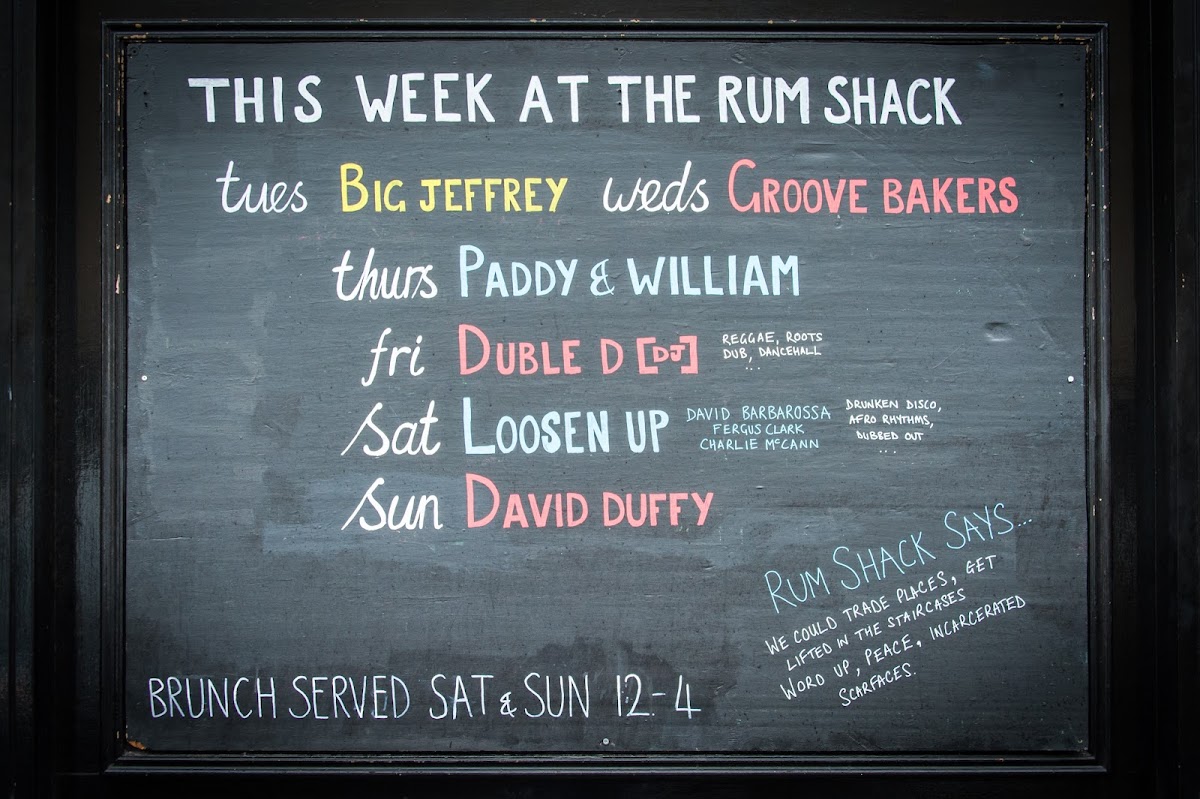 THIS WEEK AT THE RUM SHACK
tues BIG JEFFREY weds GROOVE BAKERS
thurs PADDY & WILLIAM
fri DUBLE D [DJ]
REGGAE, ROOTS
DUB, DANCEHALL
...
sat LOOSEN UP
DAVID BARBAROSSA
FERGUS CLARK
CHARLIE McCANN
DRUNKEN DISCO,
AFRO RHYTHMS,
DUBBED OUT
...
sun DAVID DUFFY
RUM SHACK SAYS...
WE COULD TRADE PLACES, GET
LIFTED IN THE STAIRCASES
WORD UP, PEACE, INCARCERATED
SCARFACES.
BRUNCH SERVED SAT & SUN 12-4